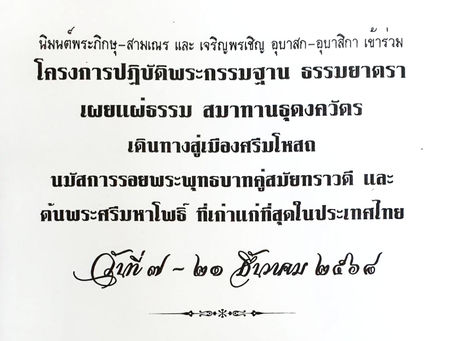 นิมนต์พระภิกษุ-สามเณร และ เจริญพรเชิญ อุบาสก-อุบาสิกา เข้าร่วม
โครงการปฏิบัติพระกรรมฐาน ธรรมยาตรา
เผยแผ่ธรรม สมาทานธุดงควัตร
เดินทางสู่เมืองศรีมโหสถ
นมัสการรอยพระพุทธบาทคู่สมัยทราวดี และ
ต้นพระศรีมหาโพธิ์ ที่เก่าแก่ที่สุดในประเทศไทย
วันที่ ๗ - ๒๑ ธันวาคม ๒๕๖๘